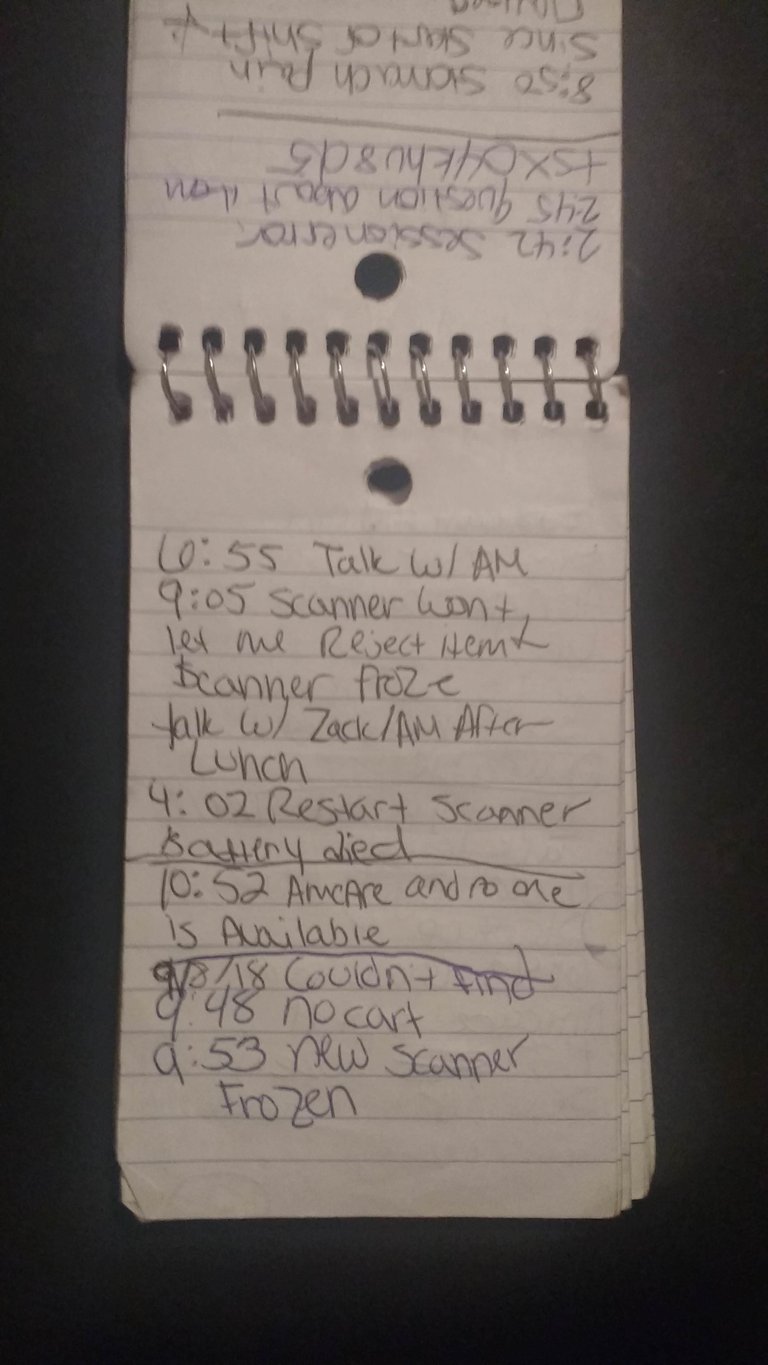 2:42 Session error
2:45 question about item
tsX04khu8d5
8:50 Stomach Pain
Since start of Shift &
6:55 Talk w/ AM
9:05 Scanner Won't
let me Reject item &
Scanner froze
talk w/ Zack/AM After
Lunch
4:02 Restart Scanner
Battery died
10:52 Amcare and no one
is Available
9/8/18 Couldn't find
9:48 no cart
9:53 new Scanner
Frozen